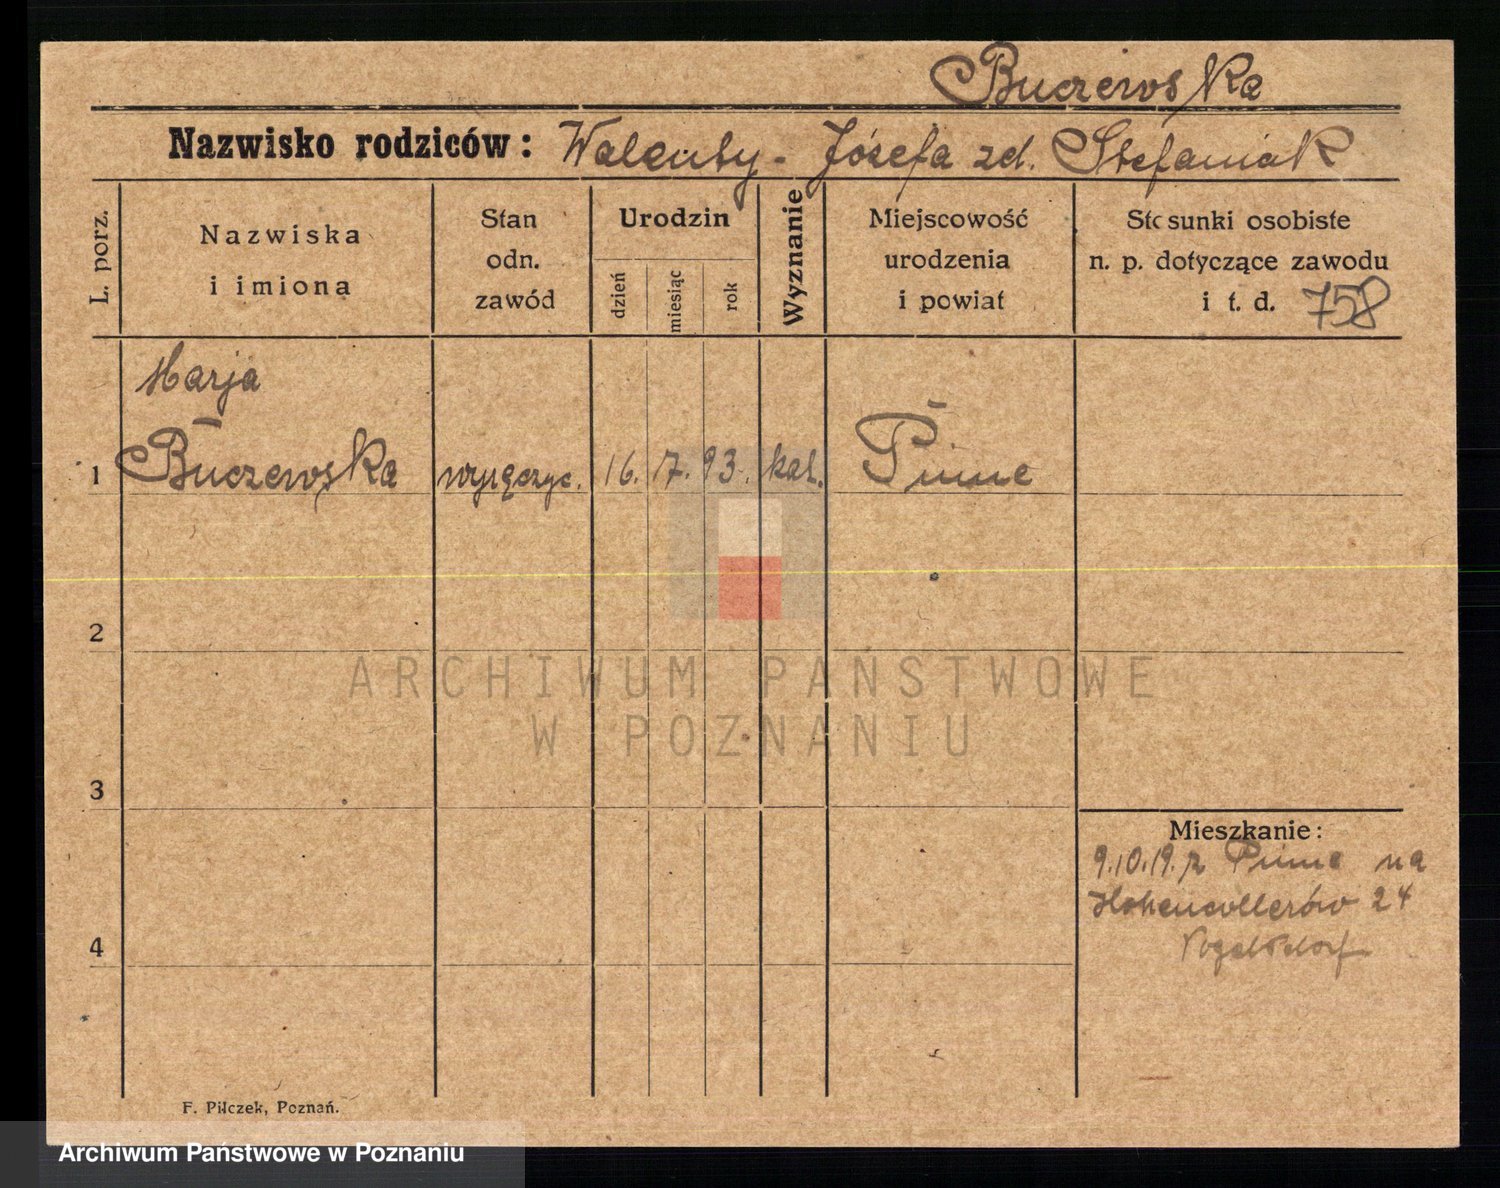 Buczewska
Nazwisko rodziców: Walenty - Józefa zd. Stefaniak
L. porz.
Nazwiska
i imiona
Stan
odn.
zawód
Urodzin
dzień
miesiąc
rok
Wyznanie
Miejscowość
urodzenia
i powiat
Stosunki osobiste
n. p. dotyczące zawodu
i t. d. 758
Marja
1 Buczewska 16. 7. 93. kat. Pinne
2
ARCHIWUM PAŃSTWOWE
W POZNANIU
3
Mieszkanie:
9.10.19. z Pinne na
Hohenzollerów 24
Vogelsdorf
4
F. Pilczek, Poznań.
Archiwum Państwowe w Poznaniu